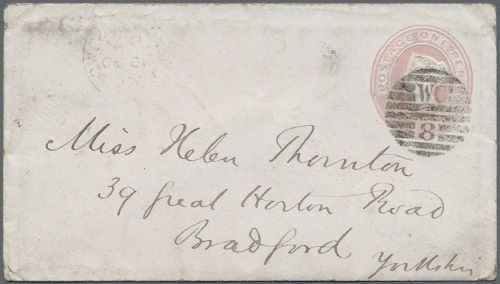 POSTAGE ONE
WC
8
Miss Helen Thornton
39 Great Horton Road
Bradford
Yorkshire